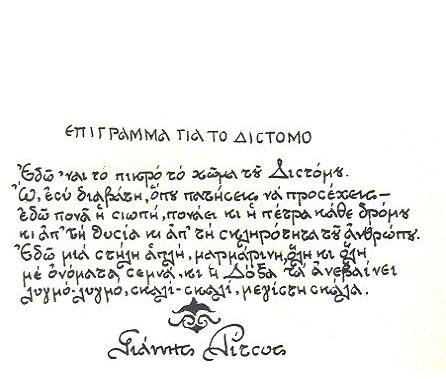 ΕΠΙΓΡΑΜΜΑ ΓΙΑ ΤΟ ΔΙΣΤΟΜΟ
Ἐδῶ 'ναι τὸ πικρὸ τὸ χῶμα τοῦ Διστόμου.
Ὦ, ἐσὺ διαβάτη, ὅπου πατήσεις νὰ προσέχεις –
ἐδῶ πονᾶ ἡ σιωπή, πονάει κι ἡ πέτρα κάθε δρόμου
κι ἀπ' τὴ θυσία κι ἀπ' τὴ σκληρότητα τοῦ ἀνθρώπου.
Ἐδῶ μιὰ στήλη ἁπλή, μαρμάρινη, ὅλη κι ὅλη
μὲ ὀνόματα σεμνά, κι ἡ Δόξα τὰ ἀνεβαίνει
λυγμό-λυγμό, σκαλί-σκαλί, μεγίστη σκάλα.
Γιάννης Ρίτσος